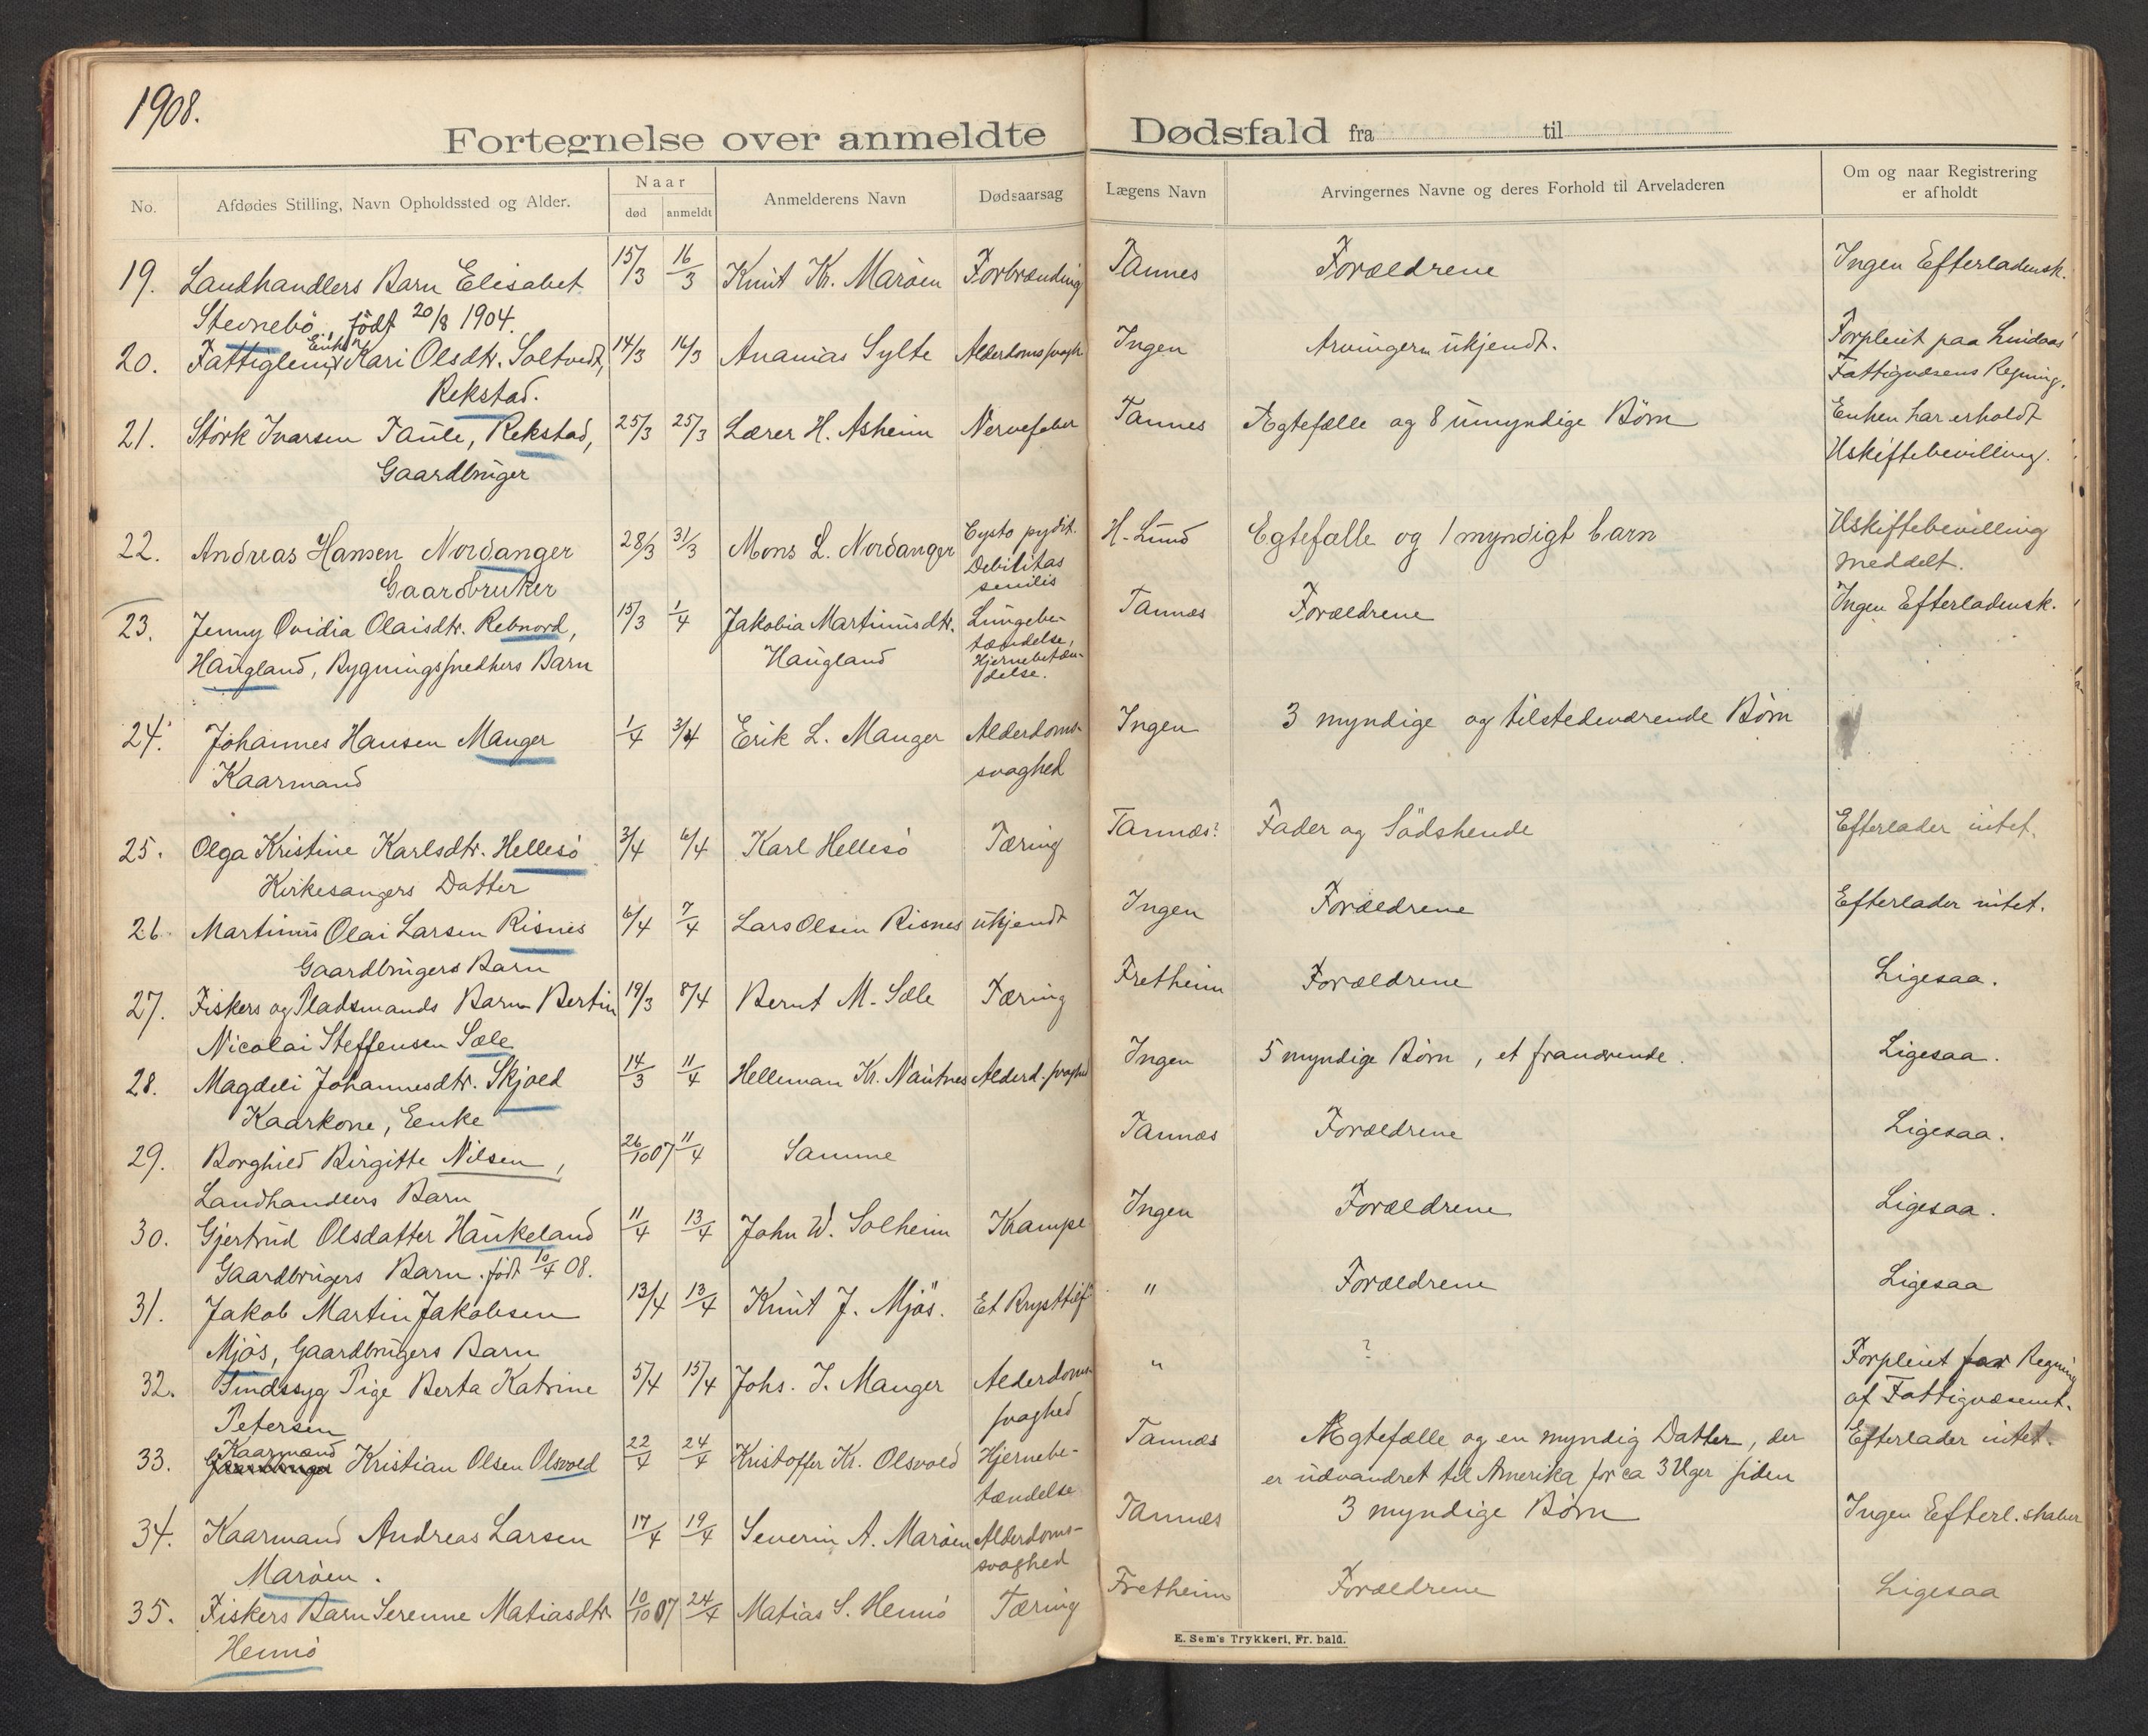 1908.
Fortegnelse over anmeldte Dødsfald fra til
No.
Afdødes Stilling, Navn Opholdssted og Alder.
Naar
død
anmeldt
Anmelderens Navn
Dødsaarsag
Lægens Navn
Arvingernes Navne og deres Forhold til Arveladeren
Om og naar Registrering
er afholdt
19. Landhandlers Barn Elisabet 15/3 16/3 Knut Kr. Maröen Forbrænding Tannes Forældrene Ingen Efterladensk.
Stevnebö, födt 20/8 1904.
Enke
20. Fattiglem Kari Olsdtr. Soltvedt, 14/3 16/3 Ananias Sylte Alderdomssvagh Ingen Arvingern ukjendt. Forpleiet paa Lindaas
Rekstad. Fattigvæsens Regning.
21. Störk Ivarsen Taule, Rekstad, 25/3 25/3 Lærer H. Asheim Nervefeber Tannes Ægtefælle og 8 umyndige Börn Enken har erholdt
Gaardbruger Uskiftebevilling.
22. Andreas Hansen Nordanger 28/3 31/3 Mons L. Nordanger Cysto pyelit. H. Lund Egtefælle og 1 myndigt barn Uskiftebevilling
Gaardbruker Debilitas meddelt.
senilis
23. Jenny Ovidia Olaisdtr. Rebnord, 15/3 1/4 Jakobia Martinusdtr. Lungebe- Tannæs Forældrene Ingen Efterladensk.
Haugland, Bygningssnedkers Barn Haugland tændelse,
Hjernebetæn-
delse.
24. Johannes Hansen Manger 1/4 3/4 Erik L. Manger Alderdoms- Ingen 3 myndige og tilstedeværende Börn
Kaarmand svaghed
25. Olga Kristine Karlsdtr. Hellesö 3/4 6/4 Karl Hellesö Tæring Tannæs? Fader og Södskende Efterlader intet.
Kirkesangers Datter
26. Martinus Olai Larsen Risnes 6/4 7/4 Lars Olsen Risnes ukjendt Ingen Forældrene Efterlader intet.
Gaardbrugers Barn
27. Fiskers og Pladsmands Barn Bertin 19/3 8/4 Bernt M. Sæle Tæring Fretheim Forældrene Ligesaa.
Nicolai Steffensen Sæle
28. Magdeli Johannesdtr. Skjold 14/3 11/4 Helleman Kr. Nautnes Alderd.svaghed Ingen 5 myndige Börn, et fraværende. Ligesaa.
Kaarkone, Enke
29. Borghild Birgitte Nilsen, 26/10 07 11/4 Samme Tannæs Forældrene Ligesaa.
Landhandlers Barn
30. Gjertrud Olsdatter Haukeland 11/4 13/4 John W. Solheim Krampe Ingen Forældrene Ligesaa.
Gaardbrugers Barn. födt 10/4 08.
31. Jakob Martin Jakobsen 13/4 13/4 Knut J. Mjös. Et Brysttilf " Forældrene Ligesaa
Mjös, Gaardbrugers Barn
32. Sindssyg Pige Berta Katrine 5/4 15/4 Johs. J. Manger Alderdoms " ? Forpleiet for Regning
Petersen svaghed af Fattigvæsenet.
Kaarmand
33. Gaardbruger Kristian Olsen Olsvold 22/4 24/4 Kristoffer Kr. Olsvold Hjernebe- Tannæs Ægtefælle og en myndig Datter, der Efterlader intet.
tændelse er udvandret til Amerika for ca 3 Uger siden
34. Kaarmand Andreas Larsen 17/4 19/4 Severin A. Maröen Alderdoms- Tannæs 3 myndige Börn Ingen Efterl.skaber
Maröen. svaghed
35. Fiskers Barn Serenne Matiasdtr. 10/10 07 24/4 Matias S. Hennö Tæring Fretheim Forældrene Ligesaa
Hennö
E. Sem's Trykkeri, Fr. hald.